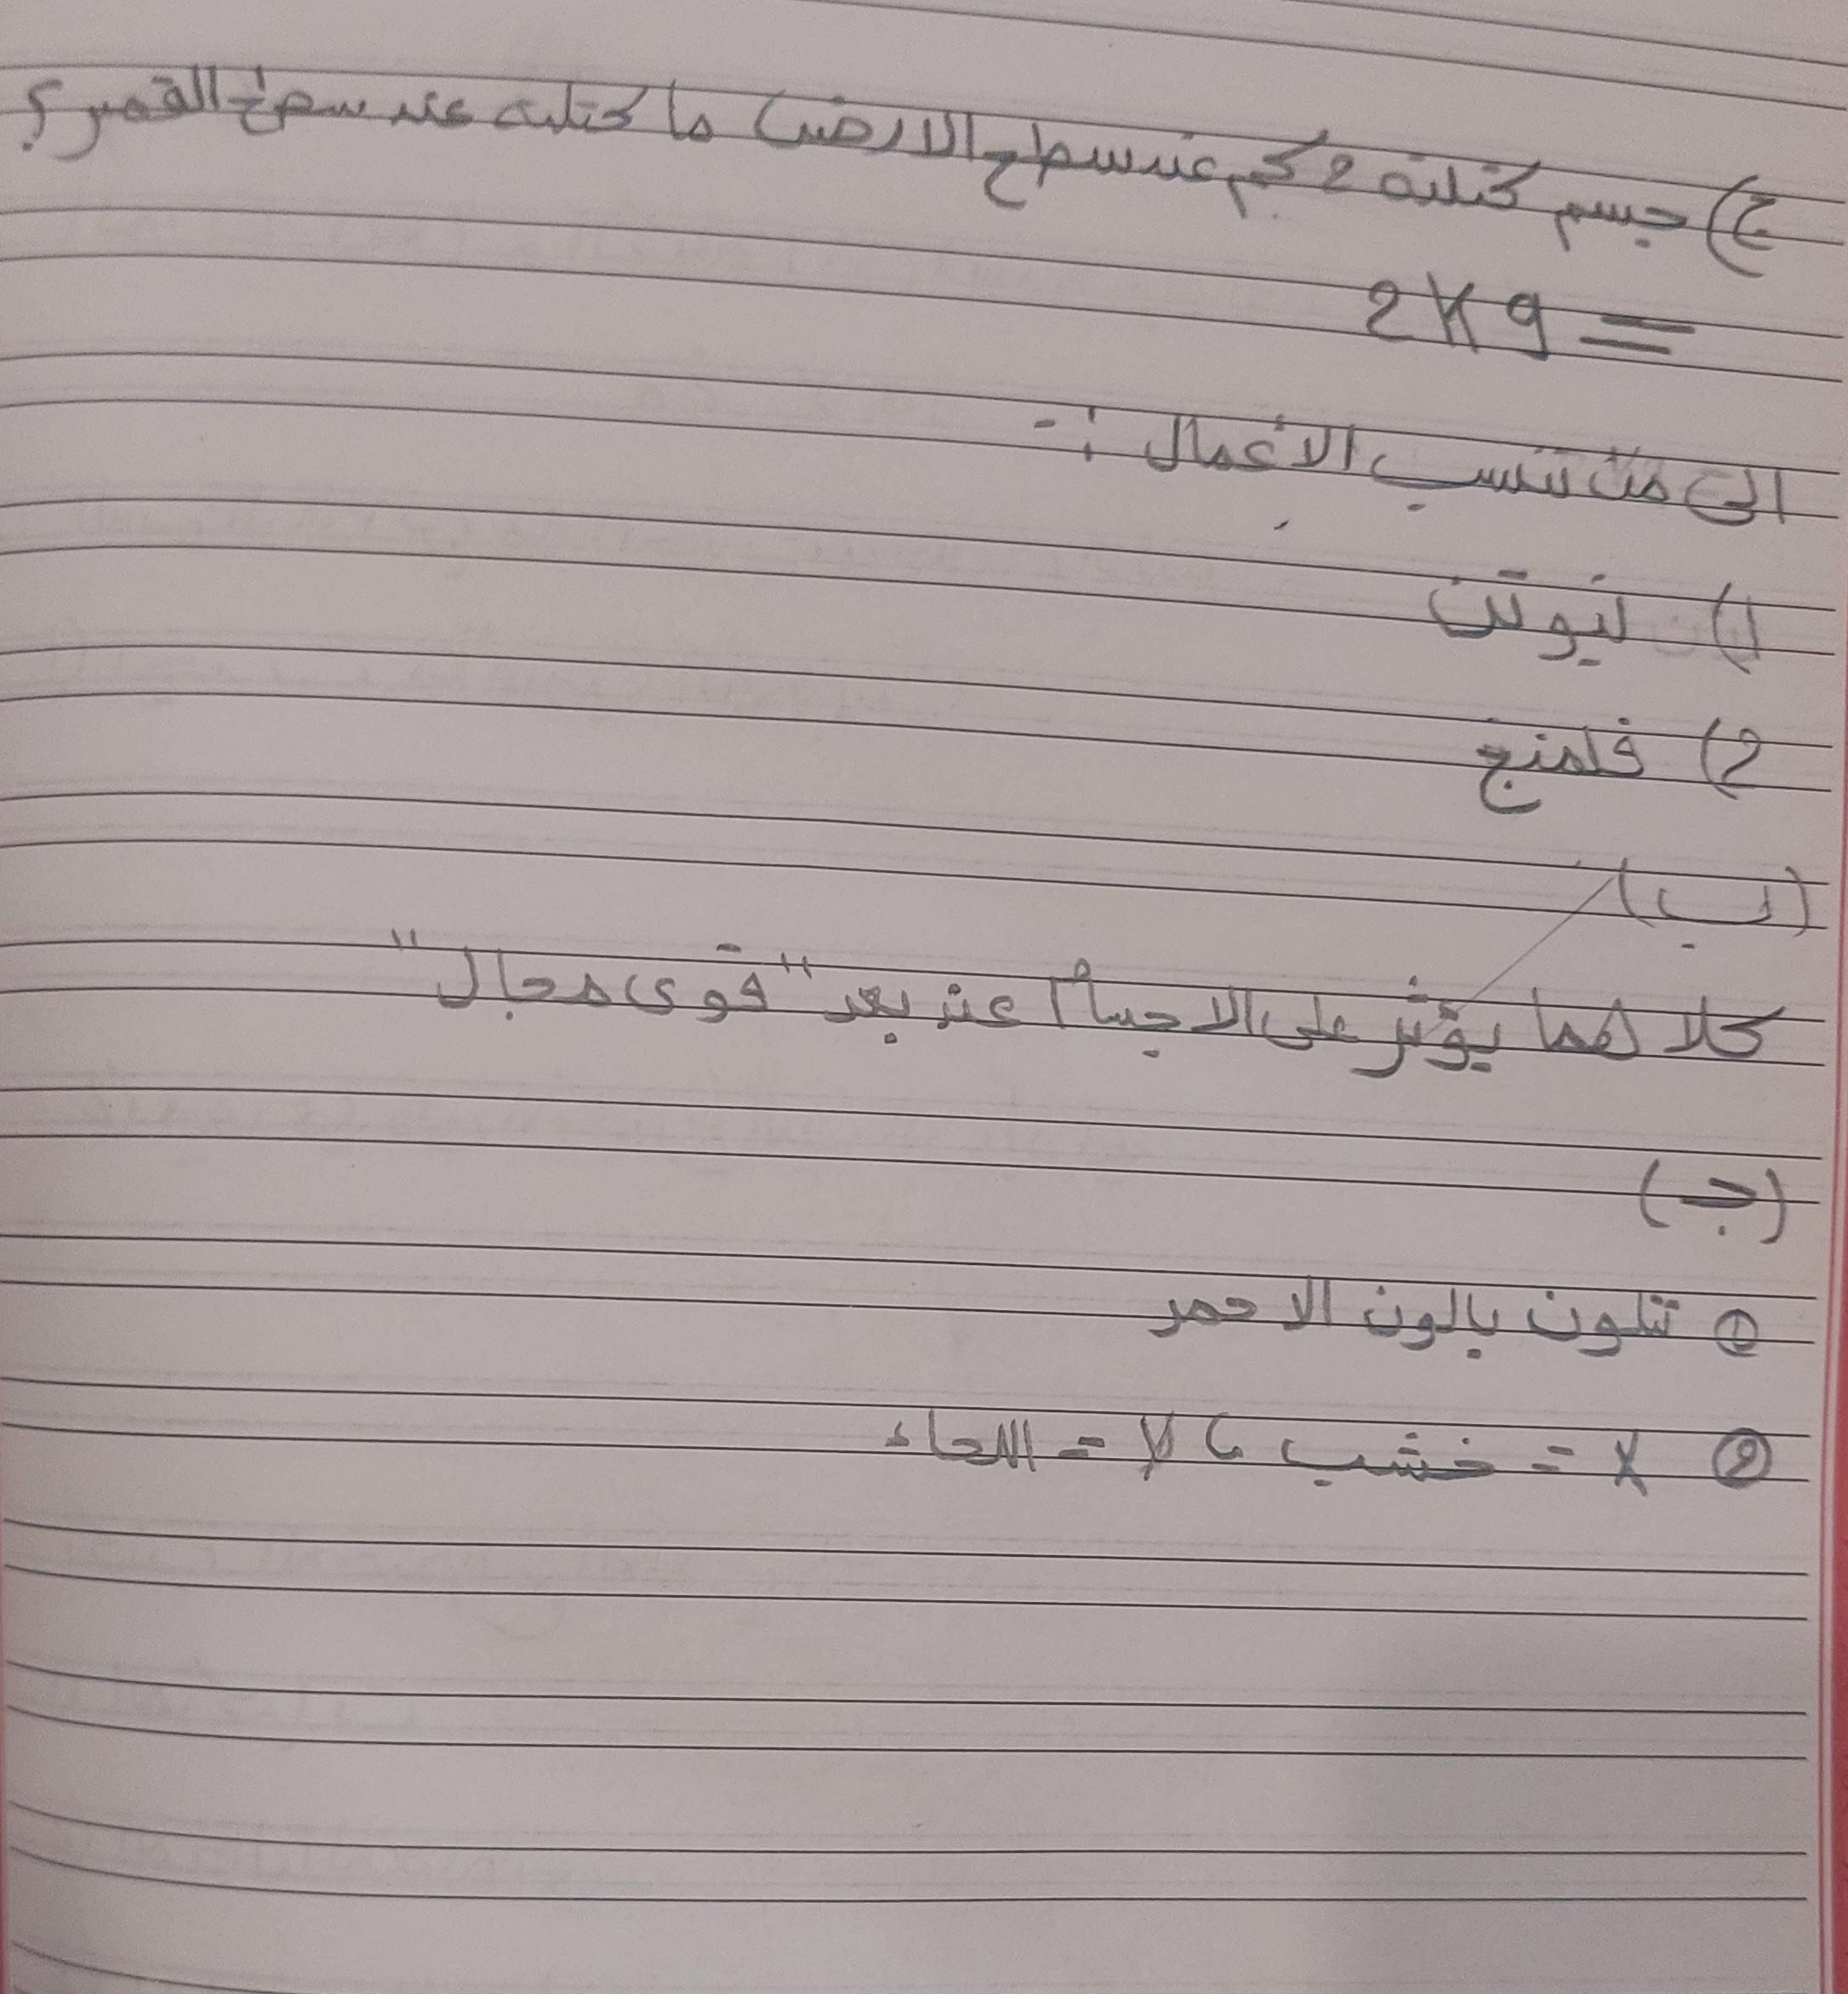 ج) جسم كتلته 2 كجم عند سطح الارض ما كتلته عند سطح القمر؟
2Kg =
الى من تنسب الاعمال :-
1) نيوتن
2) فلمنج
(ب)
كلا هما يؤثر على الاجسام عن بعد "قوى مجال"
(جـ)
① تتلون بالون الاحمر
② X = خشب ، Y = اللحاء